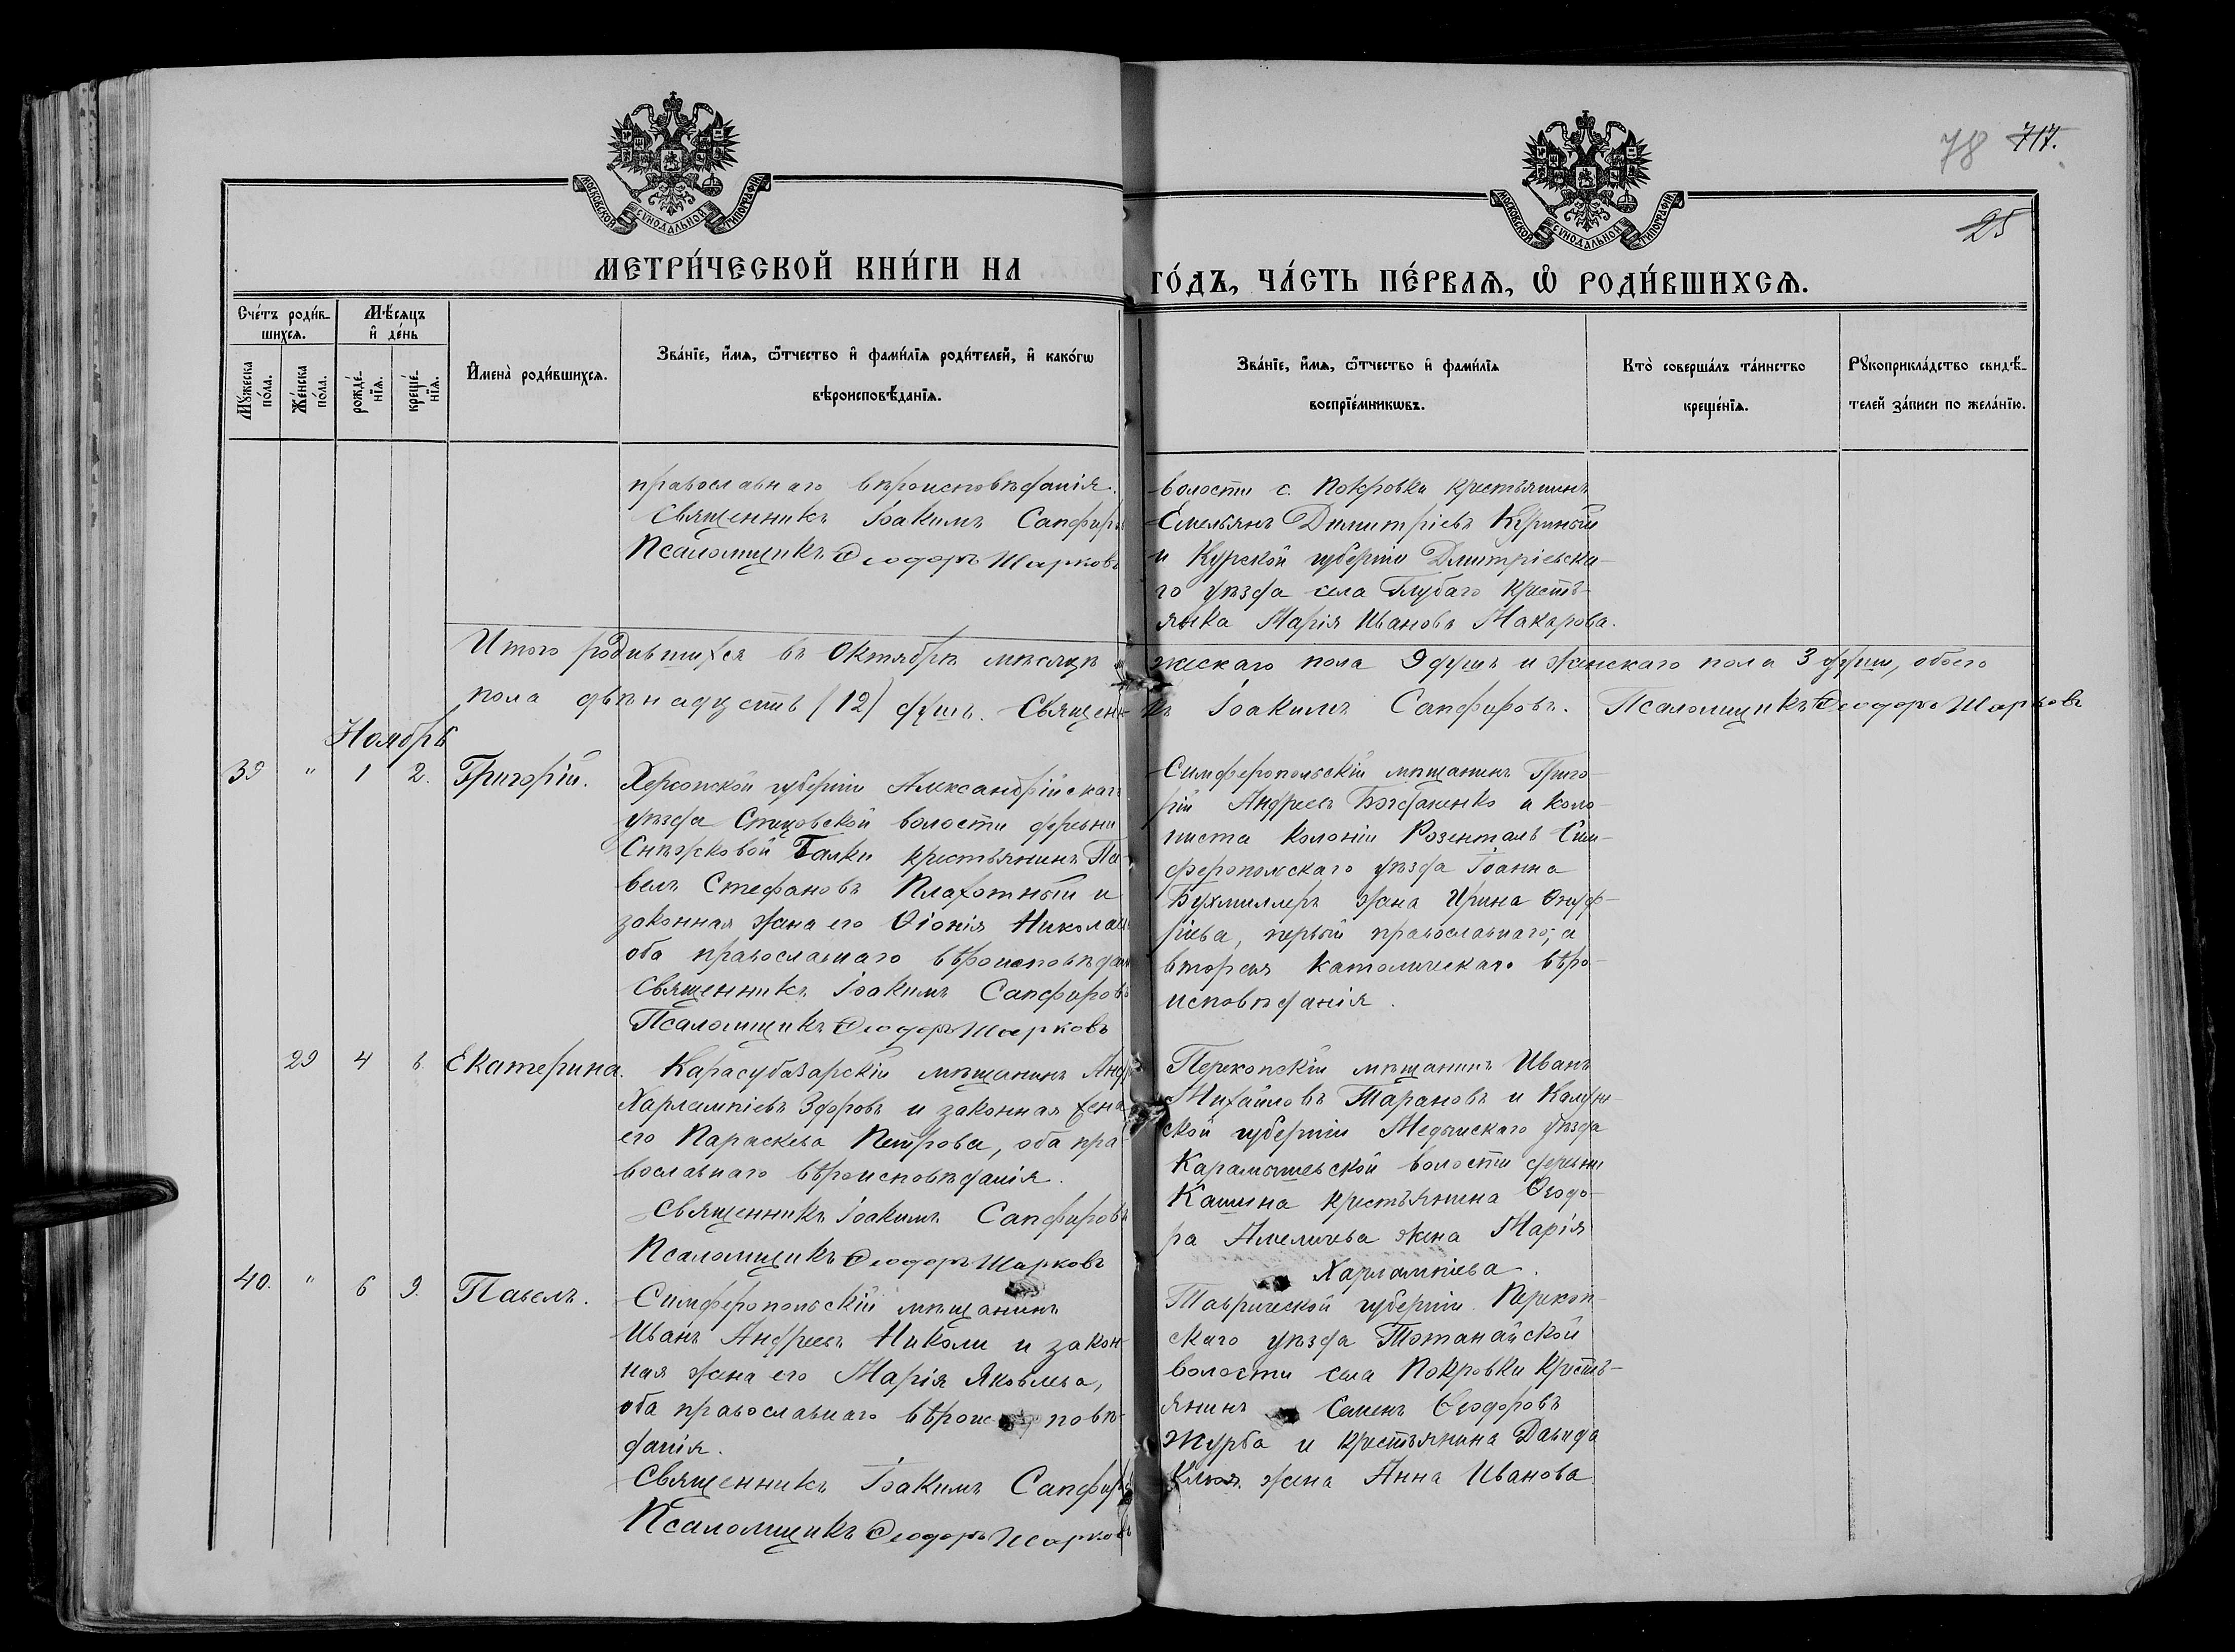 78 717.
25
МОСКОВСКОЙ СѴНОДАЛЬНОЙ ТИПОГРАФІИ
МОСКОВСКОЙ СѴНОДАЛЬНОЙ ТИПОГРАФІИ
МЕТРИ́ЧЕСКОЙ КНИ́ГИ НА ГО́ДЪ, ЧА́СТЬ ПЕ́РВАѦ, Ѡ҆ РОДИ́ВШИХСѦ.
Сче́тъ роди́вшихсѧ.
Мꙋ́жеска по́ла.
Же́нска по́ла.
Мѣ́сѧцъ и҆ де́нь
рожде́нїѧ.
креще́нїѧ.
И҆мена̀ роди́вшихсѧ.
Зва́нїе, и҆́мѧ, ѻ҆́тчество и҆ фами́лїѧ роди́телей, и҆ како́гѡ
вѣроисповѣ́данїѧ.
Зва́нїе, и҆́мѧ, ѻ҆́тчество и҆ фами́лїѧ
воспрїе́мникѡвъ.
Кто̀ соверша́лъ та́инство
креще́нїѧ.
Рꙋкоприкла́дство свидѣ́-
телей за́писи по жела́нїю.
православнаго вѣроисповѣданія.
Священникъ Іоакимъ Сапфировъ
Псаломщикъ Ѳеодоръ Шарковъ
волости с. Покровки крестьянинъ
Емельянъ Димитріевъ
и Курской губерніи Дмитріевска-
го уѣзда села Глубаго кресть-
янка Марія Иванова Макарова.
Итого родившихся въ Октябрѣ мѣсяцѣ жескаго пола 9 душъ и женскаго пола 3 души, обоего
пола двѣнадцать (12) душъ. Священникъ Іоакимъ Сапфировъ. Псаломщикъ Ѳеодоръ Шарковъ
Ноябрь
39 " 1 2. Григорій.
Херсонской губерніи Александрійскаго
уѣзда волости деревни
Снѣжковой Балки крестьянинъ Па-
велъ Стефановъ Плахотный и
законная жена его Ѳіонія Николаев
оба православнаго вѣроисповѣдан
Священникъ Іоакимъ Сапфировъ
Псаломщикъ Ѳеодоръ Шарковъ
Симферопольскій мѣщанинъ Григо-
рій Андреевъ Богдаченко и коло-
ниста колоніи Розенталь Сим-
феропольскаго уѣзда Іоанна
Бухмиллеръ жена Ирина Онуф-
ріева, первый православнаго, а
вторая католическаго вѣро-
исповѣданія.
29 4 6. Екатерина.
Карасубазарскій мѣщанинъ Анд
Харлампіевъ Здоровъ и законная жена
его Параскева Петрова, оба пра-
вославнаго вѣроисповѣданія.
Священникъ Іоакимъ Сапфировъ
Псаломщикъ Ѳеодоръ Шарковъ
Перекопскій мѣщанинъ Иванъ
Михайловъ Тарановъ и Калуж-
ской губерніи Медынскаго уѣзда
Карамышевской волости деревни
Кашина крестьянина Ѳеодо-
ра Амеличева жена Марія
Харлампіева.
40. " 6 9. Павелъ.
Симферопольскій мѣщанинъ
Иванъ Андреевъ Николи и закон-
ная жена его Марія Яковлева,
оба православнаго вѣроисповѣ-
данія.
Священникъ Іоакимъ Сапфировъ
Псаломщикъ Ѳеодоръ Шарковъ
Таврической губерніи Перекоп-
скаго уѣзда Тотанайской
волости села Покровки кресть-
янинъ Семенъ Ѳеодоровъ
Журба и крестьянина Давида
жена Анна Иванова